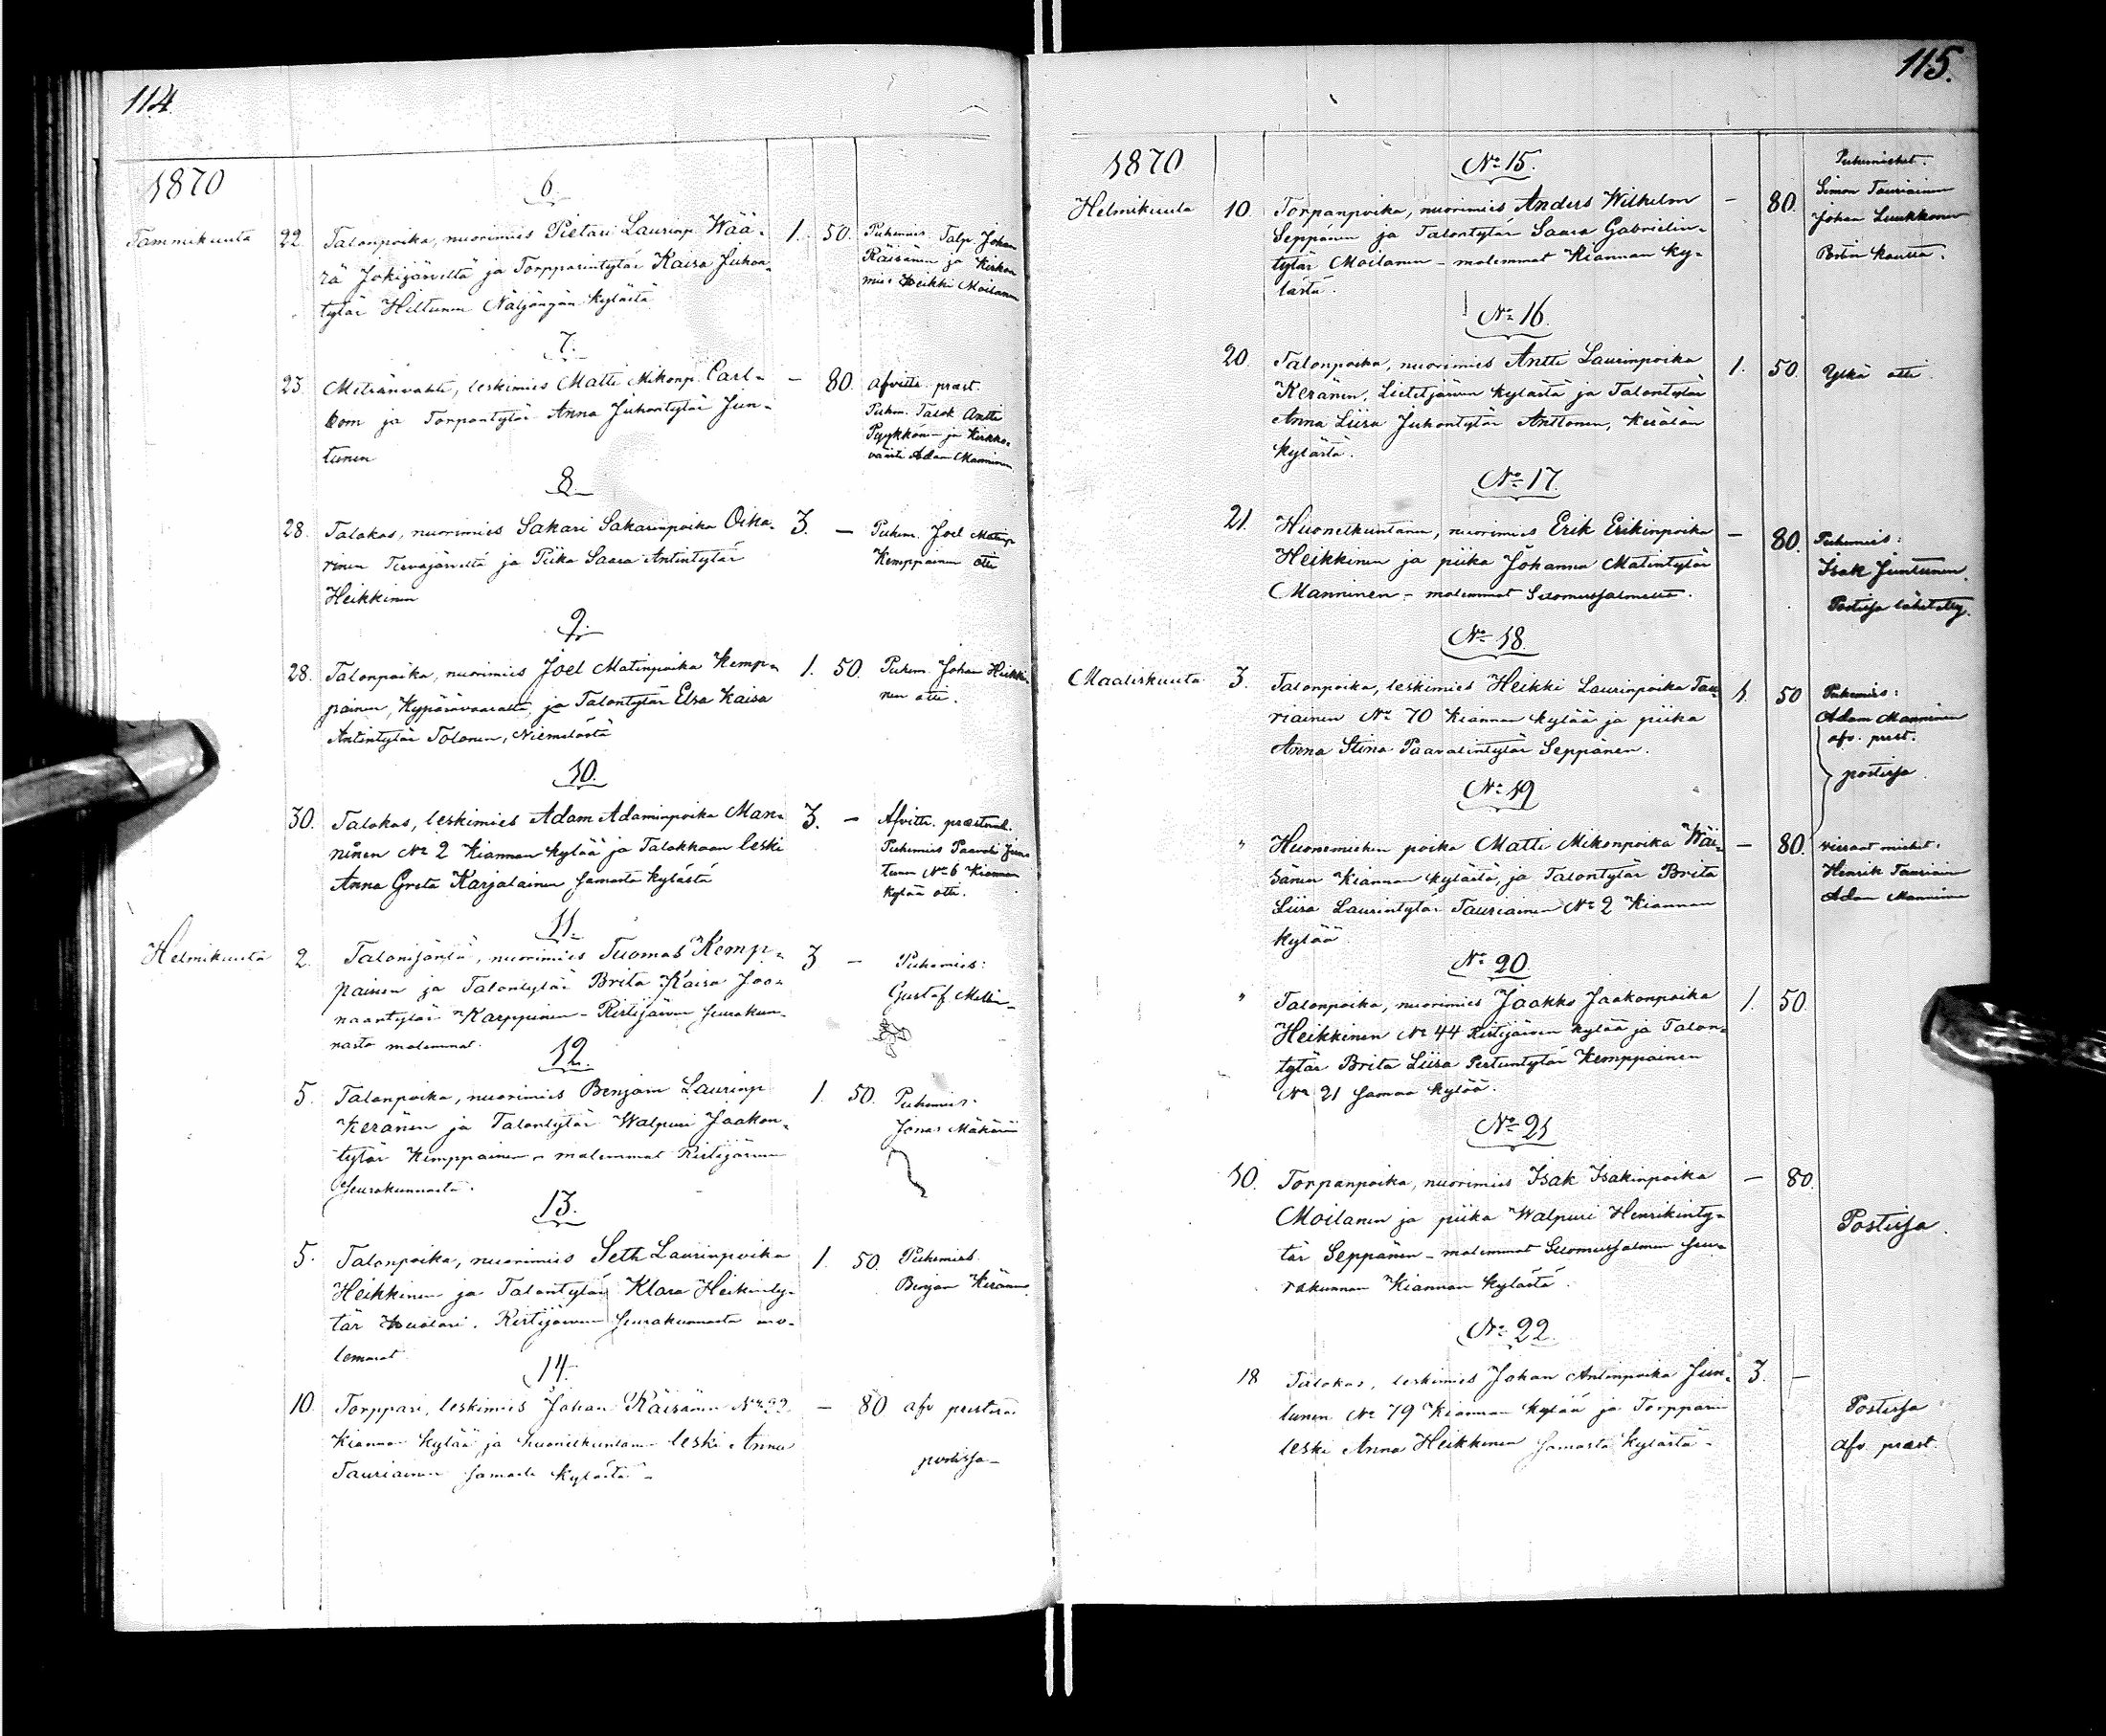 114.
1870
6.
Tammikuuta 22. Talonpoika, nuorimies Pietari Laurinp. Wää- 1. 50. Puhemies Talp. Johan
rä Jokijärveltä ja Torpparintytär Kaisa Juhon- Räisänen ja Kirkon
tytär Hiltunen Näljängän kylästä mies Heikki Moilanen
7.
23. Metsänvahti, leskimies Matti Mikonp. Carl- — 80. Afvittr. præst.
bom ja Torpantytär Anna Juhontytär Jun- Puhm. Talok Antti
tunen Pyykkön— ja Kirkko-
väärti Adam Manninen
8.
28. Talokas, nuorimies Sakari Sakarinpoika Oika- 3. — Puhem. Joel Matinp
rinen Tervajärveltä ja Piika Saara Antintytär Kemppainen otti
Heikkinen
9.
28. Talonpoika, nuorimies Joel Matinpoika Kemp- 1. 50. Puhem. Johan Heikki-
painen, Hyppärävaaralta, ja Talontytär Elsa Kaisa nen otti.
Antintytär Tolonen, Niemelästä
10.
30. Talokas, leskimies Adam Adaminpoika Man- 3. — Afvittr. præsterad.
ninen No 2 Kiannan kylää ja Talokkaan leski Puhemies Paavali Jun-
Anna Greta Karjalainen samasta kylästä tunen No 6 Kiannan
kylää otti.
11.
Helmikuuta 2. Talonisäntä, nuorimies Tuomas Kemp- 3 — Puhemies:
painen ja Talontytär Brita Kaisa Joo- Gustaf
naantytär Karppinen – Ristijärven seurakun-
nasta molemmat.
12.
5. Talonpoika, nuorimies Benjam Laurinp 1. 50. Puhemies:
Keränen ja Talontytär Walpuri Jaakon- Jonas Mäkäräi
tytär Kemppainen – molemmat Ristijärven
seurakunnasta.
13.
5. Talonpoika, nuorimies Seth Laurinpoika 1. 50. Puhemies
Heikkinen ja Talontytär Klara Heikinty- Benjam Keränen
tär . Ristijärven seurakunnasta mo-
lemmat
14.
10. Torppari, leskimies Johan Räisänen No 99 — 80 afv presterad
Kiannan kylää, ja huonekuntam. leski Anna
Tauriainen samasta kylästä – postissa–
115.
1870
No 15. Puhemiehet.
Helmikuuta 10. Torpanpoika, nuorimies Anders Wilhelm — 80. Simon Tauriainen
Seppänen ja Talontytär Saara Gabrielin- Johan Luukkonen
tytär Moilanen – molemmat Kiannan ky- Postin kautta.
lästä.
No 16.
20. Talonpoika, nuorimies Antti Laurinpoika 1. 50. Ylkä otti
Keränen, kylästä ja Talontytär
Anna Liisa Juhontytär Anttonen, Kerälän
kylästä.
No 17.
21. Huonekuntanen, nuorimies Erik Erikinpoika — 80. Puhemies:
Heikkinen ja piika Johanna Matintytär Isak Juntunen.
Manninen – molemmat Suomussalmelta. Postissa lähetetty.
No 18.
Maaliskuuta 3. Talonpoika, leskimies Heikki Laurinpoika Tau- 1. 50 Puhemies:
riainen No 70 Kiannan kylää ja piika Adam Manninen
Anna Stina Paavalintytär Seppänen. afv. prest.
postissa.
No 19
" Huonemiehen poika Matti Mikonpoika Wäi- — 80. vieraat miehet:
sänen Kiannan kylästä, ja Talontytär Brita Henrik Tauriain
Liisa Laurintytär Tauriainen No 2 Kiannan Adam Manninen
kylää
No 20
" Talonpoika, nuorimies Jaakko Jaakonpoika 1. 50.
Heikkinen No 44 Ristijärven kylää ja Talon-
tytär Brita Liisa Pertuntytär Kemppainen
No 21 samaa kylää.
No 21
10. Torpanpoika, nuorimies Isak Isakinpoika — 80.
Moilanen ja piika Walpuri Henrikinty- Postissa.
tär Seppänen – molemmat Suomussalmen seu-
rakunnan Kiannan kylästä.
No 22.
18 Talokas, leskimies Johan Antinpoika Jun- 3. —
tunen No 79 Kiannan kylää ja Torpparin Postissa
leski Anna Heikkinen samasta kylästä – afv. præst.